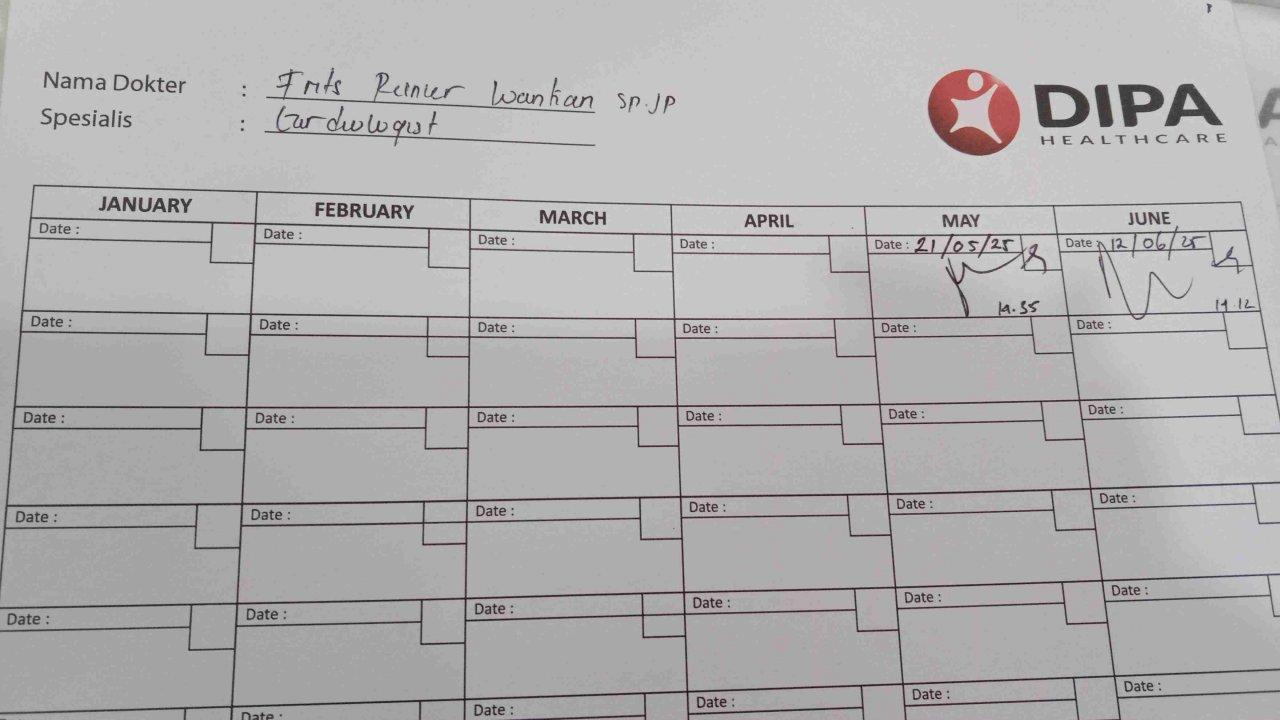 Nama Dokter : Frits Reinier Wantian SP.JP
Spesialis : Cardiologist
DIPA
HEALTHCARE
JANUARY FEBRUARY MARCH APRIL MAY JUNE
Date : Date : Date : Date : Date : 21/05/25 Date : 12/06/25
14.35 14 12
Date : Date : Date : Date : Date : Date :
Date : Date : Date : Date : Date : Date :
Date : Date : Date : Date : Date : Date :
Date : Date : Date : Date : Date : Date :
Date : Date : Date : Date : Date :